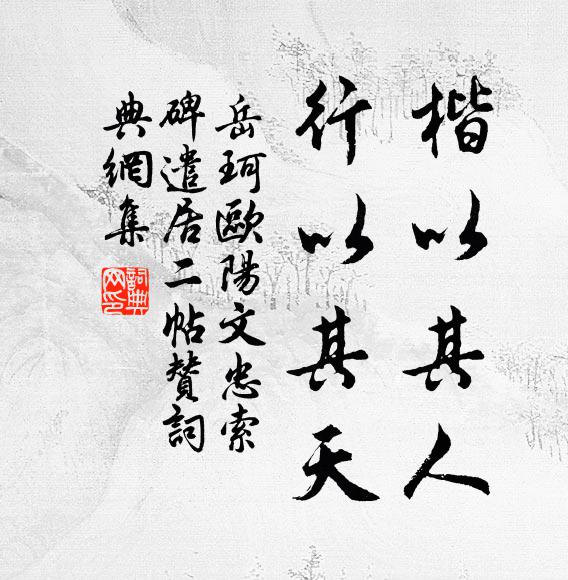 楷以其人
行以其天
岳珂歐陽文忠索
碑遣居二帖贊詞
典網集
詞典網印